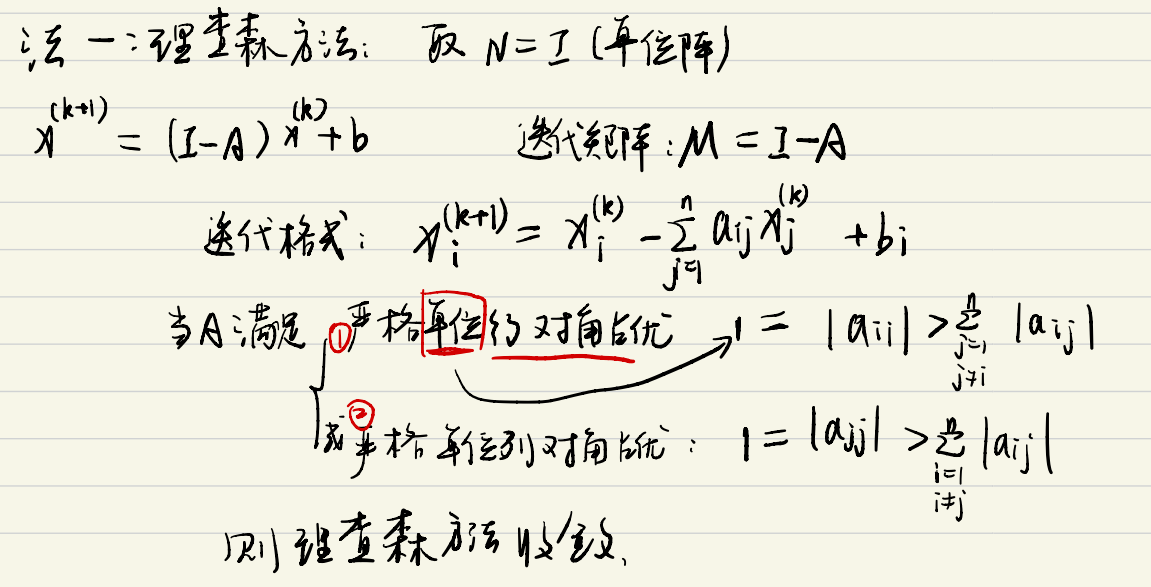 法一:理查森方法: 取 N=I (单位阵)
x^(k+1) = (I-A) x^(k) + b 迭代矩阵: M = I-A
迭代格式: x_i^(k+1) = x_i^(k) - ∑_{j=1}^{n} a_ij x_j^(k) + b_i
当A满足 ①严格单位行对角占优 1 = |a_ii| > ∑_{j=1, j≠i}^{n} |a_ij|
或②严格单位列对角占优: 1 = |a_jj| > ∑_{i=1, i≠j}^{n} |a_ij|
则理查森方法收敛.